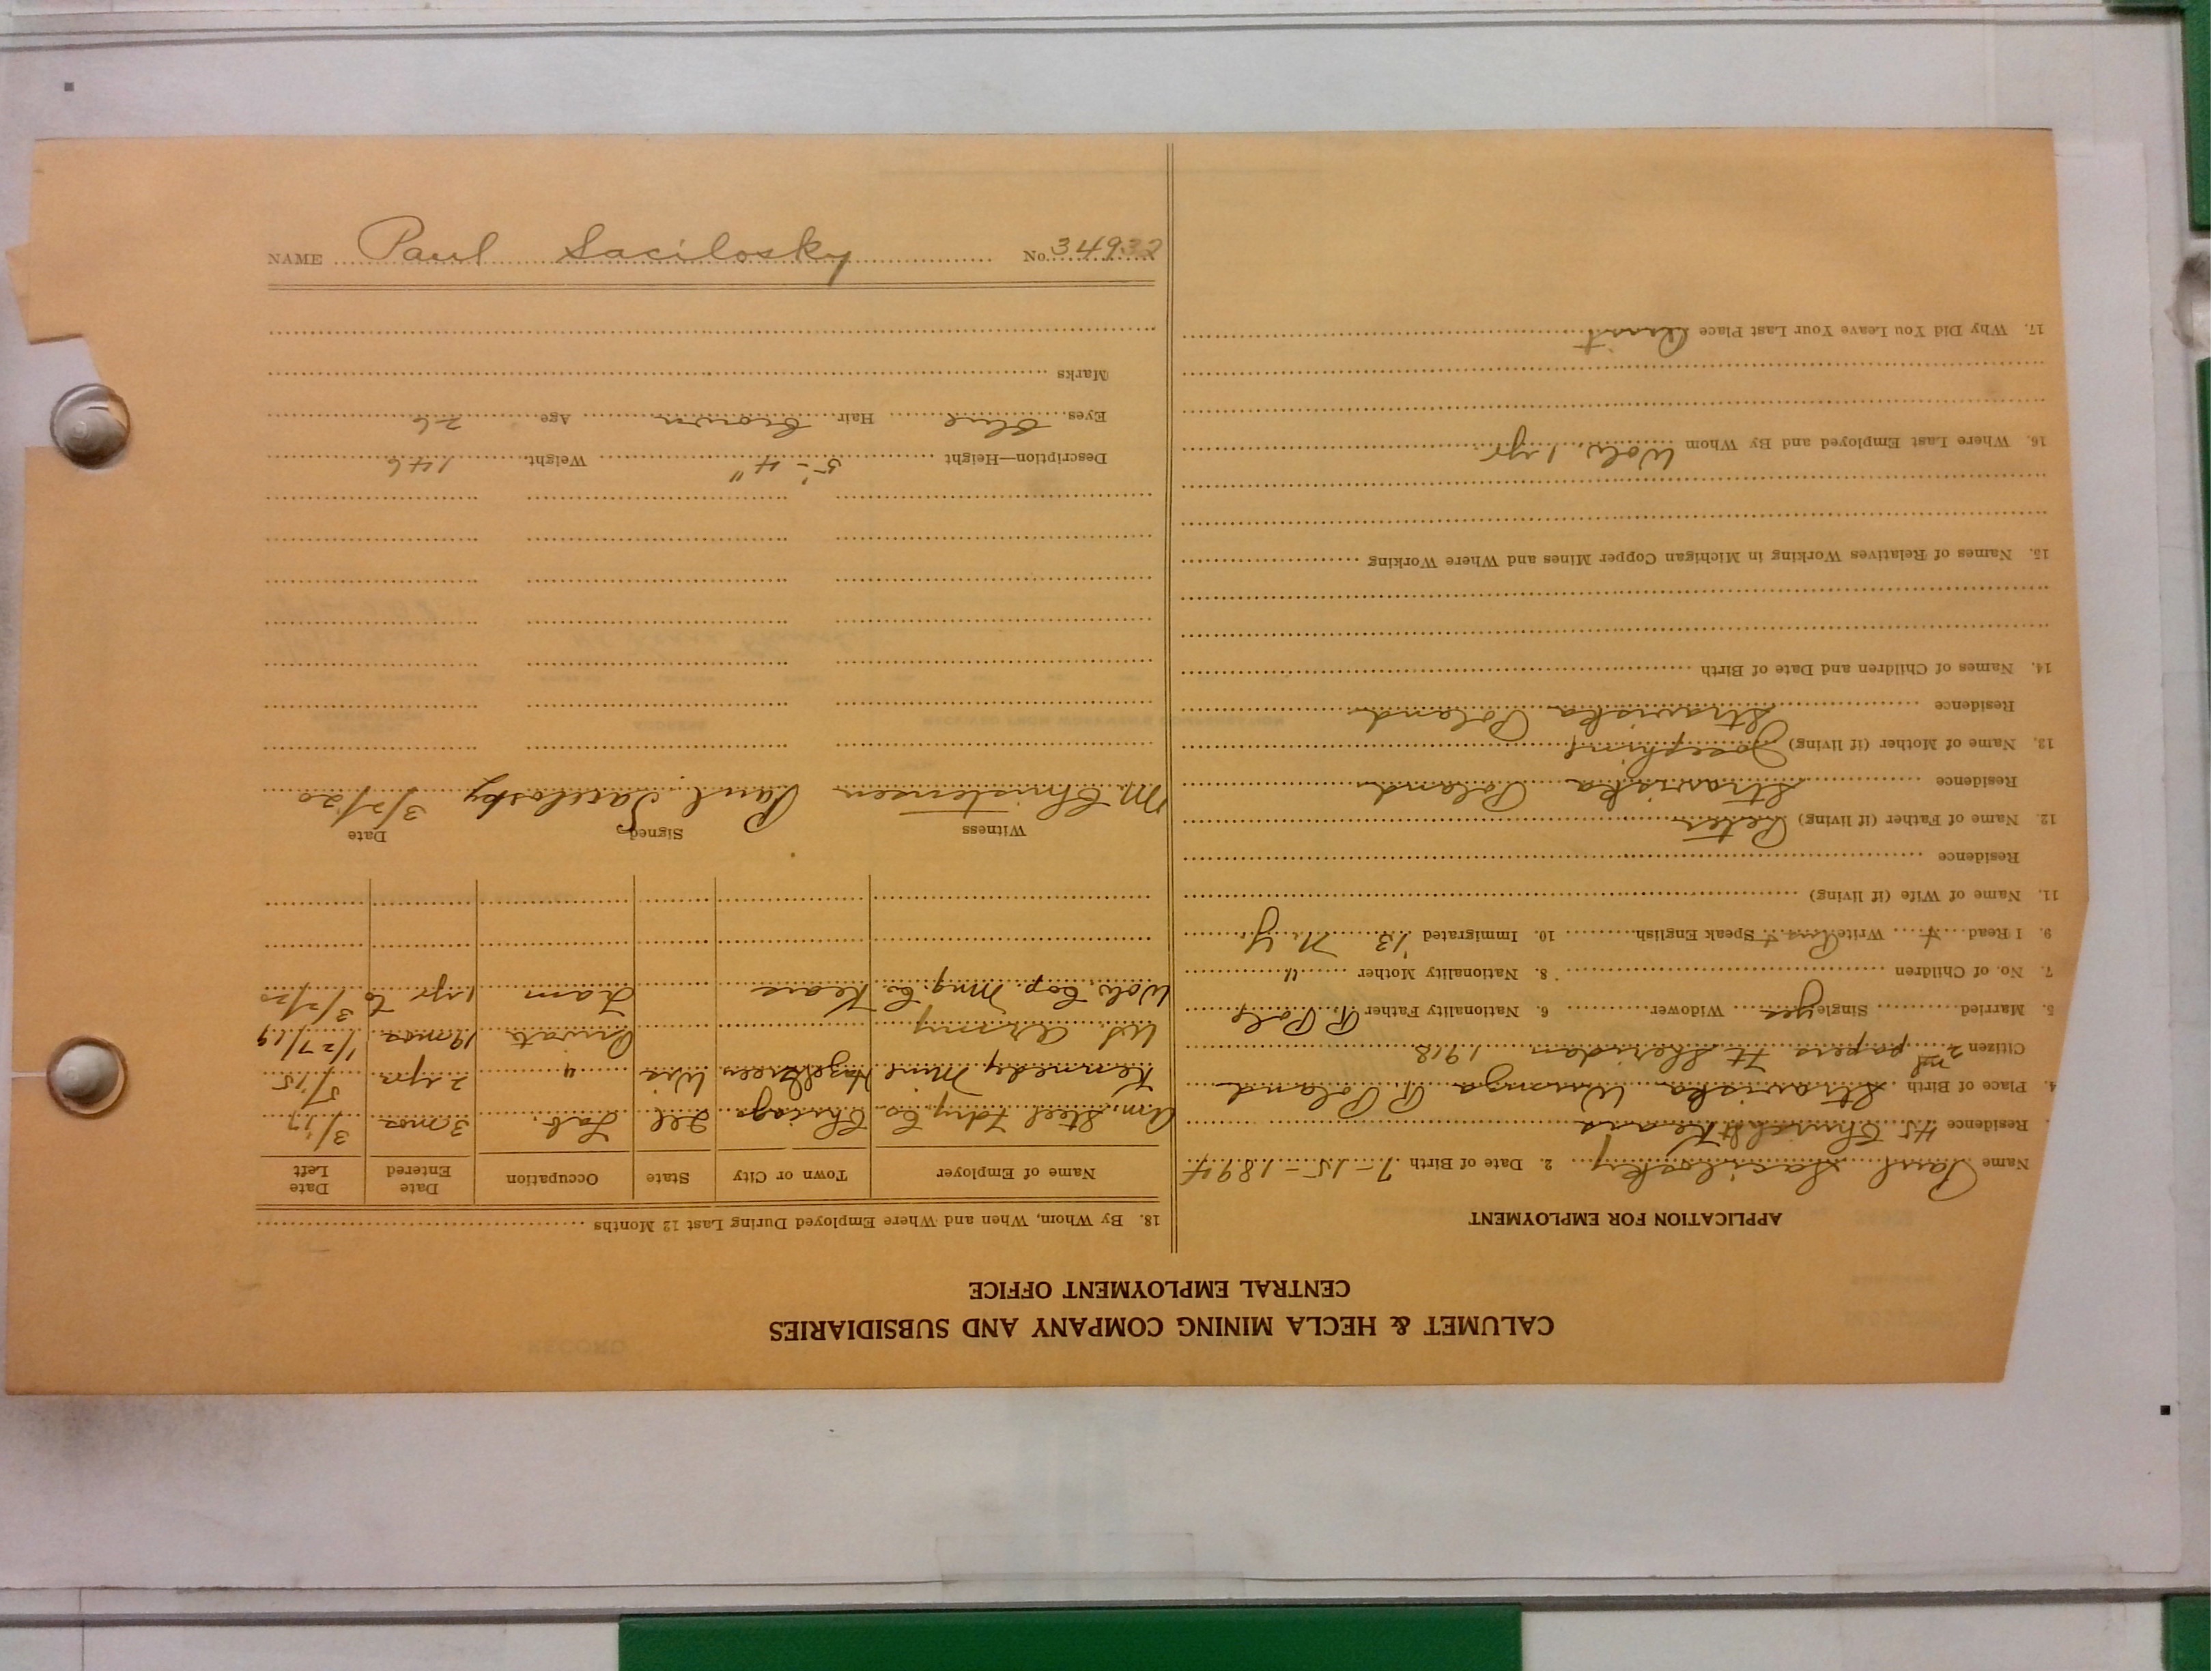 CALUMET & HECLA MINING COMPANY AND SUBSIDIARIES
CENTRAL EMPLOYMENT OFFICE
APPLICATION FOR EMPLOYMENT
Name Paul Sacilosky 2. Date of Birth 7-15-1894
Residence 45 Church St Keara
4. Place of Birth Straviska R. Poland
Citizen 2nd papers Ft Sheridan 1918
5. Married Single yes Widower 6. Nationality Father R. Pole
7. No. of Children 8. Nationality Mother "
9. I Read + Write Speak English 10. Immigrated '13 N.Y.
11. Name of Wife (if living)
Residence
12. Name of Father (if living) Peter
Residence Straviska Poland
13. Name of Mother (if living) Josephine
Residence Straviska Poland
14. Names of Children and Date of Birth
15. Names of Relatives Working in Michigan Copper Mines and Where Working
16. Where Last Employed and By Whom Wolv. 1 yr.
17. Why Did You Leave Your Last Place Quit
18. By Whom, When and Where Employed During Last 12 Months
Name of Employer Town or City State Occupation Date Entered Date Left
Am. Steel Fdry Co. Chicago Ill Lab. 3 mos 3/17
Kennedy Mine Wis " 2 yrs 5/15
U.S. Army Private 19 mos 1/27/19
Wolv. Cop. Mng. Co. Keara Tram 1 yr to 3/2/20
Witness Signed Date
M. Christensen Paul Sacilosky 3/2/20
Description—Height 5'-4" Weight 146
Eyes Blue Hair Brown Age 26
Marks
NAME Paul Sacilosky No. 34932